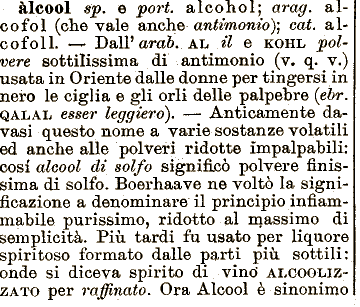 àlcool sp. e port. alcohol; arag. al-
cofol (che vale anche antimonio); cat. al-
cofoll. — Dall' arab. AL il e KOHL pol-
vere sottilissima di antimonio (v. q. v.)
usata in Oriente dalle donne per tingersi in
nero le ciglia e gli orli delle palpebre (ebr.
QALAL esser leggiero). — Anticamente da-
vasi questo nome a varie sostanze volatili
ed anche alle polveri ridotte impalpabili:
cosí alcool di solfo significò polvere finis-
sima di solfo. Boerhaave ne voltò la signi-
ficazione a denominare il principio infiam-
mabile purissimo, ridotto al massimo di
semplicità. Più tardi fu usato per liquore
spiritoso formato dalle parti più sottili:
onde si diceva spirito di vino ALCOOLIZ-
ZATO per raffinato. Ora Alcool è sinonimo